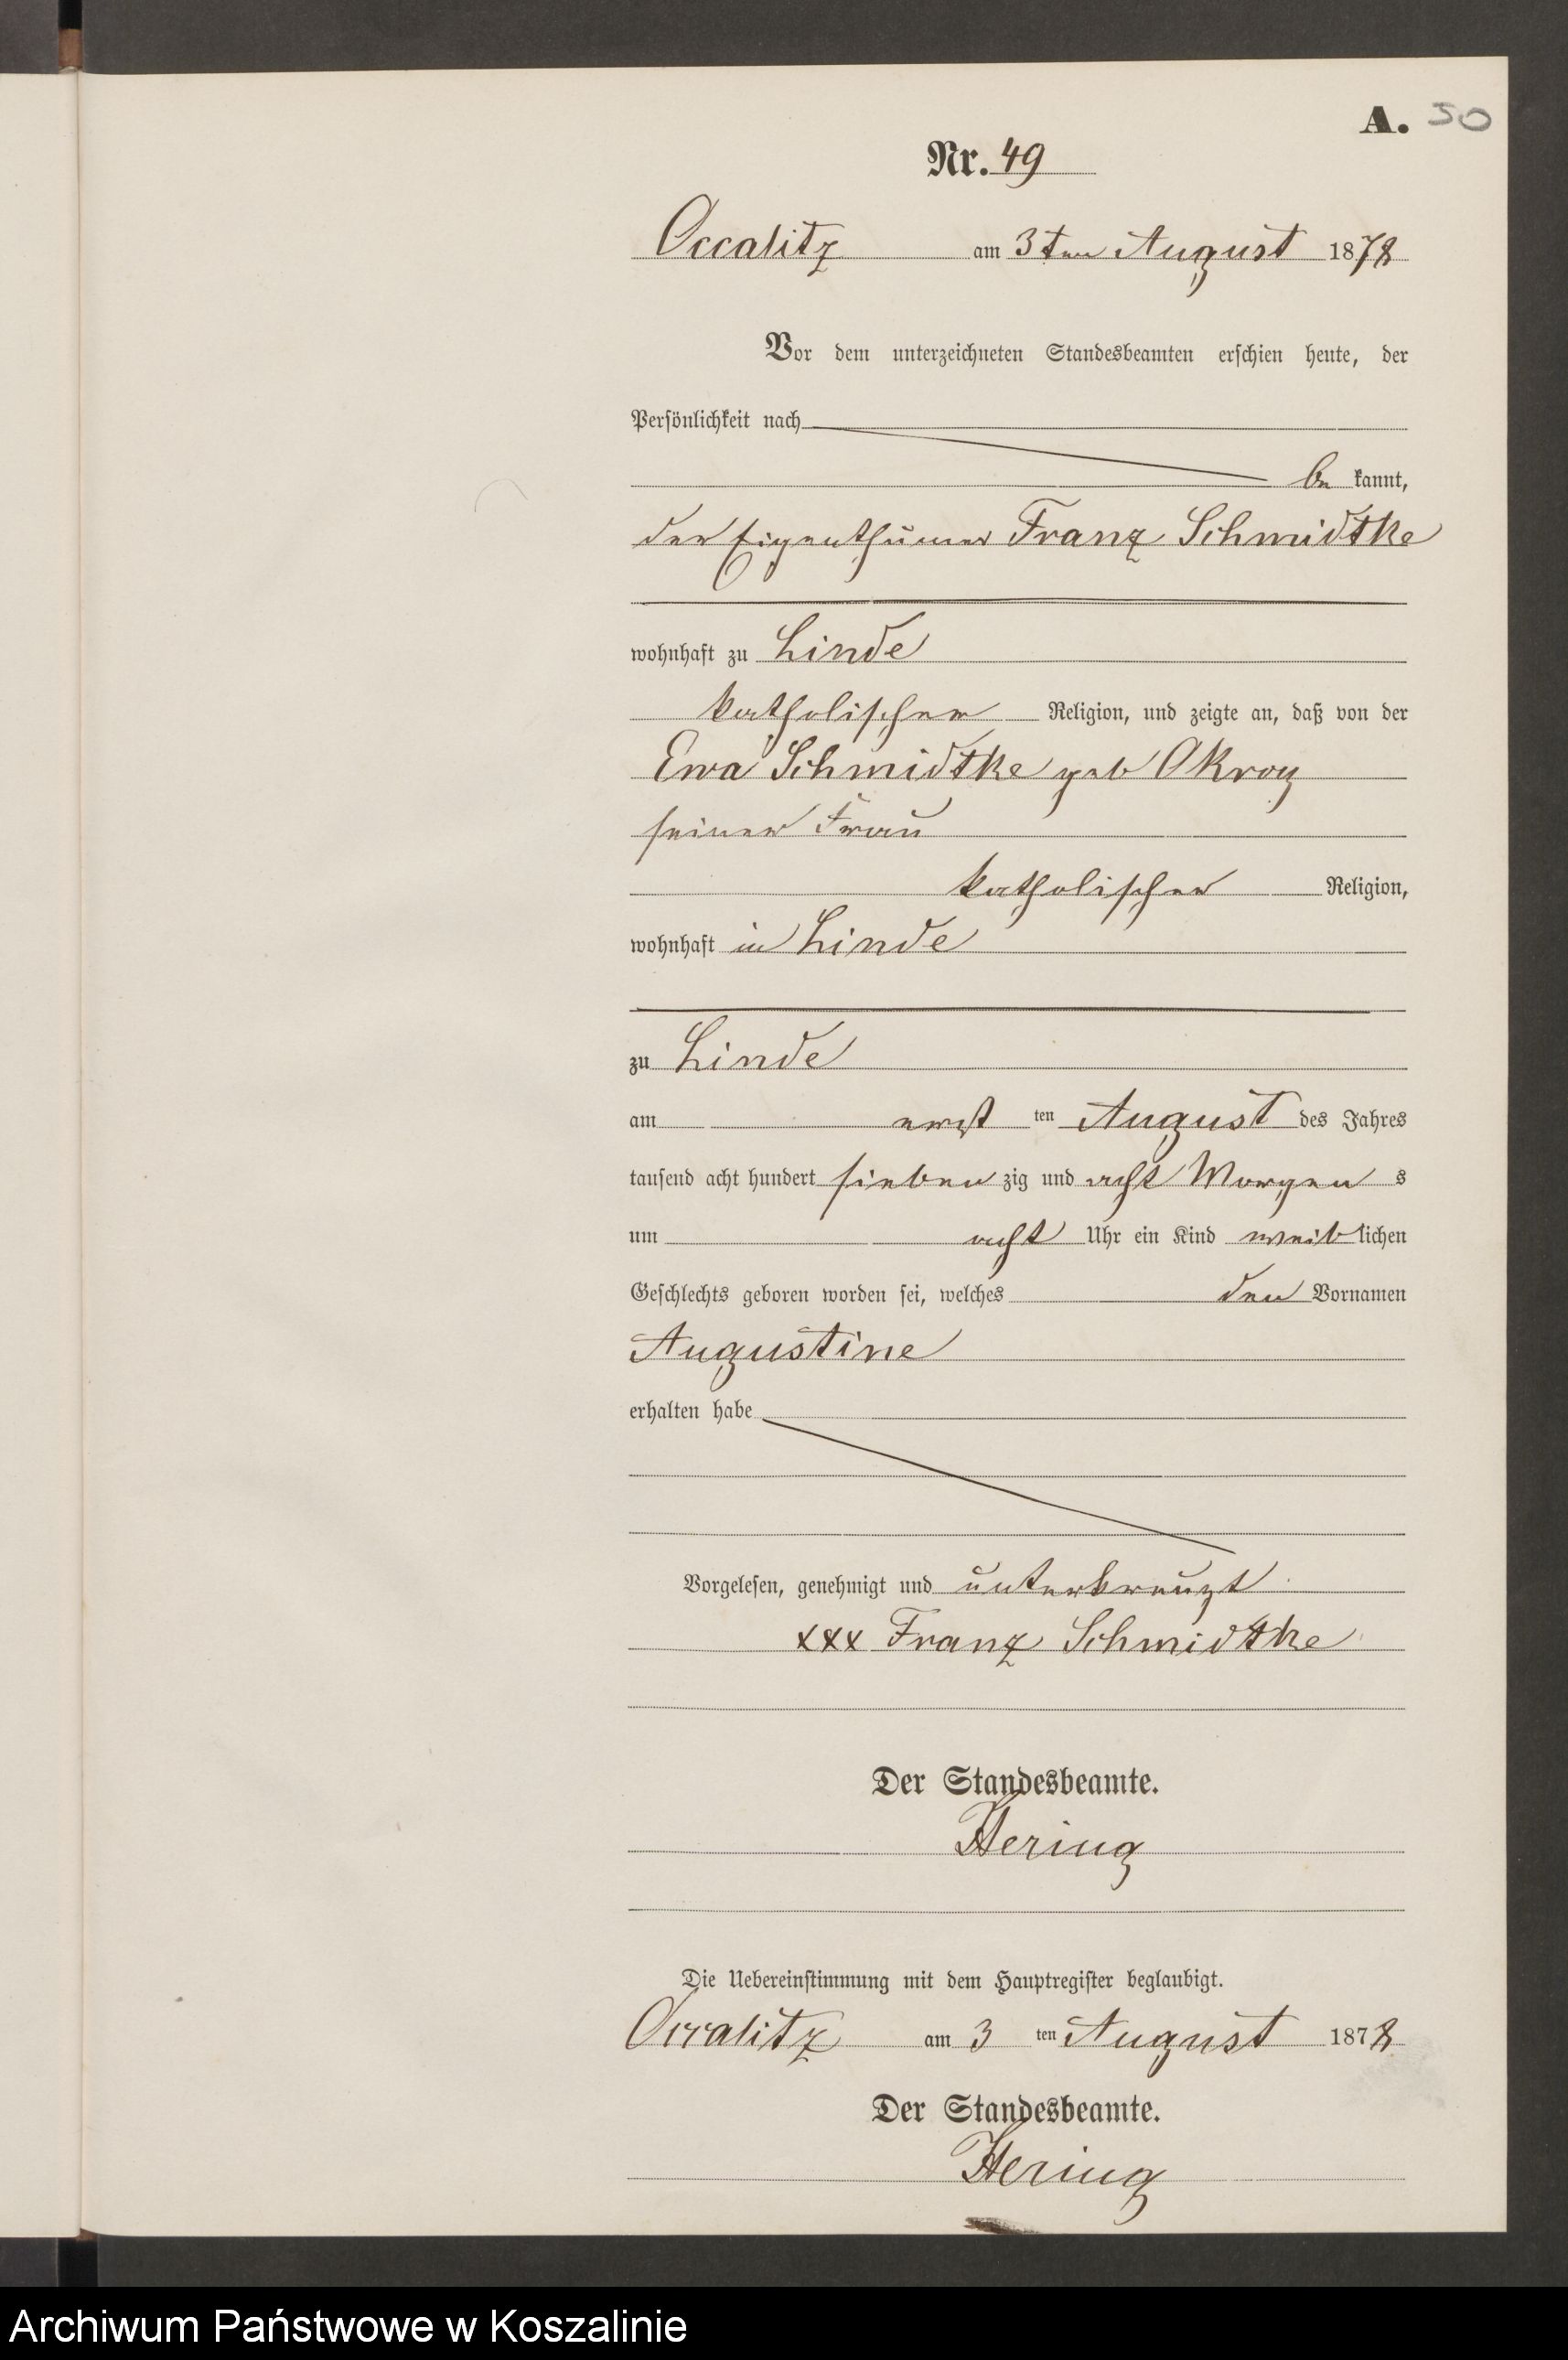 A. 50
Nr. 49
Occalitz am 3ten August 1878
Vor dem unterzeichneten Standesbeamten erschien heute, der
Persönlichkeit nach
be kannt,
der Eigenthümer Franz Schmidtke
wohnhaft zu Linde
katholischer Religion, und zeigte an, daß von der
Ewa Schmidtke geb Okroy
seiner Frau
katholischer Religion,
wohnhaft in Linde
zu Linde
am erst ten August des Jahres
tausend acht hundert sieben zig und acht Morgen s
um acht Uhr ein Kind weib lichen
Geschlechts geboren worden sei, welches den Vornamen
Augustine
erhalten habe
Vorgelesen, genehmigt und unterkreuzt
xxx Franz Schmidtke
Der Standesbeamte.
Hering
Die Uebereinstimmung mit dem Hauptregister beglaubigt.
Occalitz am 3 ten August 1878
Der Standesbeamte.
Hering
Archiwum Państwowe w Koszalinie